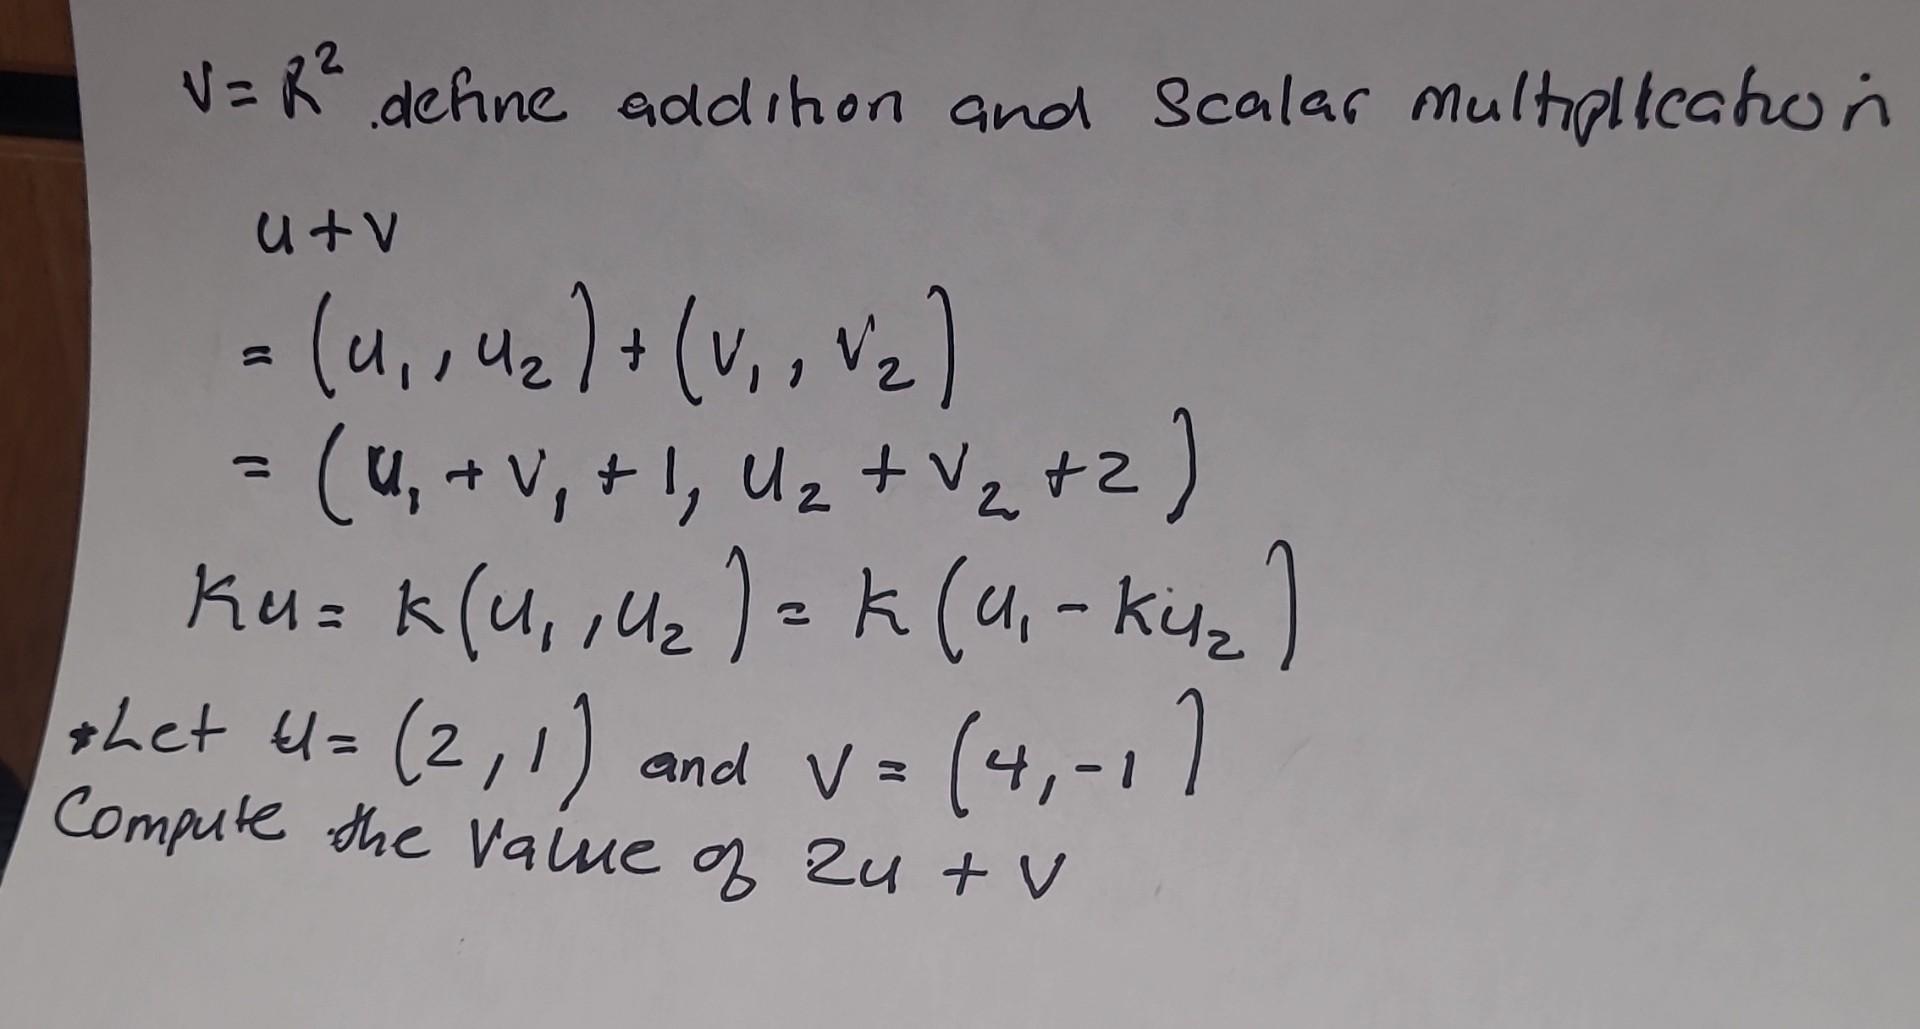 V = R² .define addition and Scalar multiplication
u + v
= (u₁, u₂) + (v₁, v₂)
= (u₁ + v₁ + 1, u₂ + v₂ + 2)
Ku = k(u₁, u₂) = k(u₁ - ku₂)
*Let u = (2, 1) and v = (4, -1)
Compute the value of 2u + v